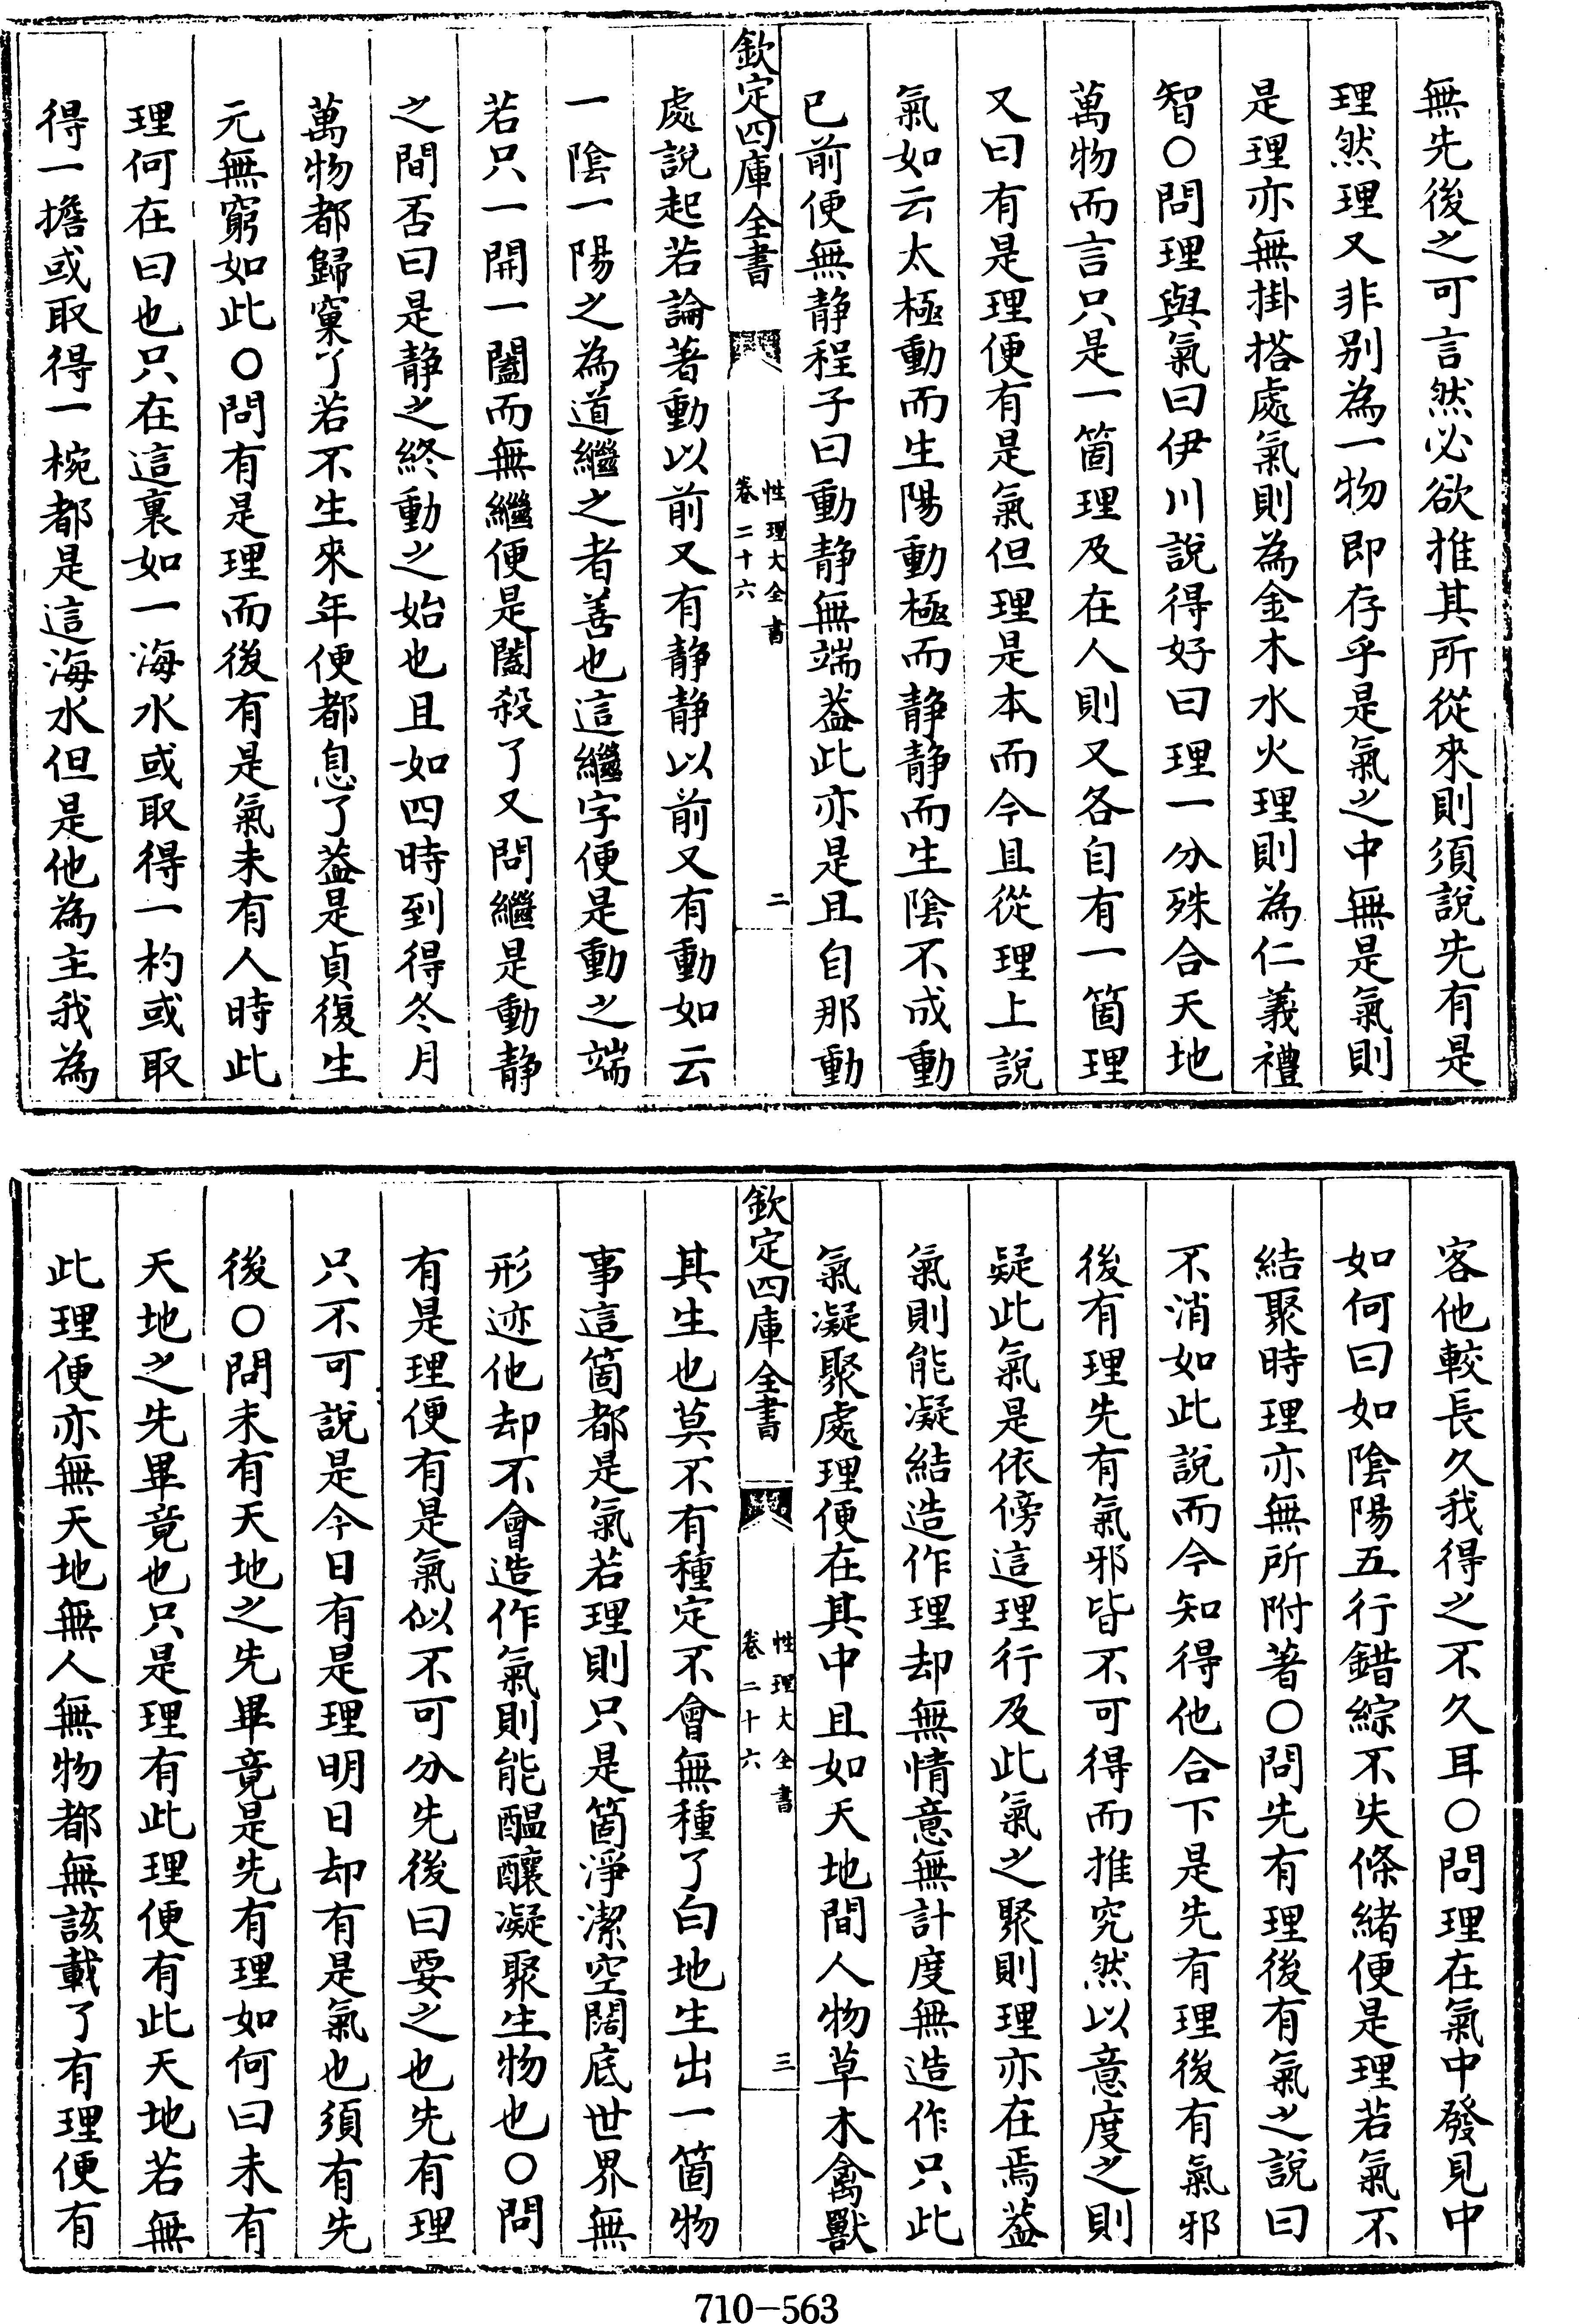 無先後之可言然必欲推其所從來則須說先有是
理然理又非别為一物即存乎是氣之中無是氣則
是理亦無掛搭處氣則為金木水火理則為仁義禮
智○問理與氣曰伊川說得好曰理一分殊合天地
萬物而言只是一箇理及在人則又各自有一箇理
又曰有是理便有是氣但理是本而今且從理上說
氣如云太極動而生陽動極而静静而生陰不成動
已前便無静程子曰動静無端葢此亦是且自那動
欽定四庫全書
性理大全書
卷二十六
二
處說起若論著動以前又有静静以前又有動如云
一陰一陽之為道繼之者善也這繼字便是動之端
若只一開一闔而無繼便是闔殺了又問繼是動静
之間否曰是静之終動之始也且如四時到得冬月
萬物都歸窠了若不生來年便都息了葢是貞復生
元無窮如此○問有是理而後有是氣未有人時此
理何在曰也只在這裏如一海水或取得一杓或取
得一擔或取得一椀都是這海水但是他為主我為
客他較長久我得之不久耳○問理在氣中發見中
如何曰如陰陽五行錯綜不失條緒便是理若氣不
結聚時理亦無所附著○問先有理後有氣之說曰
不消如此說而今知得他合下是先有理後有氣邪
後有理先有氣邪皆不可得而推究然以意度之則
疑此氣是依傍這理行及此氣之聚則理亦在焉葢
氣則能凝結造作理却無情意無計度無造作只此
氣凝聚處理便在其中且如天地間人物草木禽獸
欽定四庫全書
性理大全書
卷二十六
三
其生也莫不有種定不會無種了白地生出一箇物
事這箇都是氣若理則只是箇淨潔空闊底世界無
形迹他却不會造作氣則能醖釀凝聚生物也○問
有是理便有是氣似不可分先後曰要之也先有理
只不可說是今日有是理明日却有是氣也須有先
後○問未有天地之先畢竟是先有理如何曰未有
天地之先畢竟也只是理有此理便有此天地若無
此理便亦無天地無人無物都無該載了有理便有
710-563